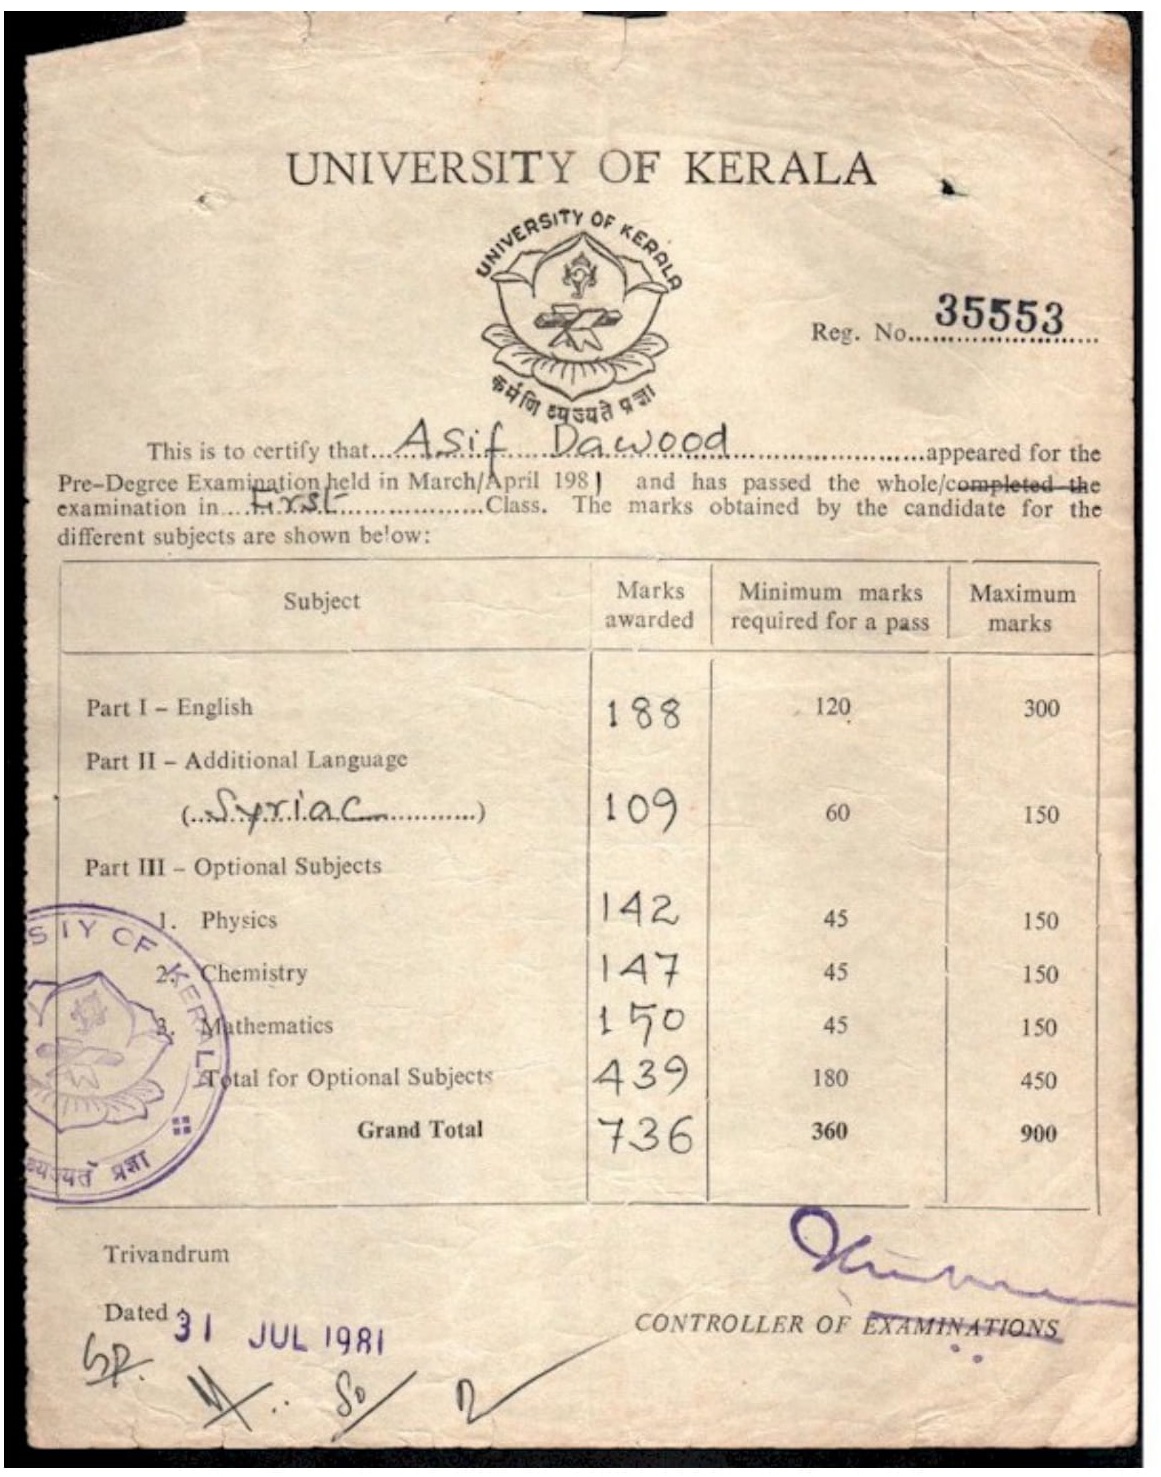 UNIVERSITY OF KERALA
UNIVERSITY OF KERALA
कर्मणि व्यज्यते प्रज्ञा
Reg. No. 35553
This is to certify that Asif Dawood appeared for the
Pre-Degree Examination held in March/April 1981 and has passed the whole/completed the
examination in First Class. The marks obtained by the candidate for the
different subjects are shown below:
Subject Marks awarded Minimum marks required for a pass Maximum marks
Part I – English 188 120 300
Part II – Additional Language
(Syriac) 109 60 150
Part III – Optional Subjects
1. Physics 142 45 150
2. Chemistry 147 45 150
3. Mathematics 150 45 150
Total for Optional Subjects 439 180 450
Grand Total 736 360 900
SITY OF KERALA
व्यज्यते प्रज्ञा
Trivandrum
Dated 31 JUL 1981
CONTROLLER OF EXAMINATIONS